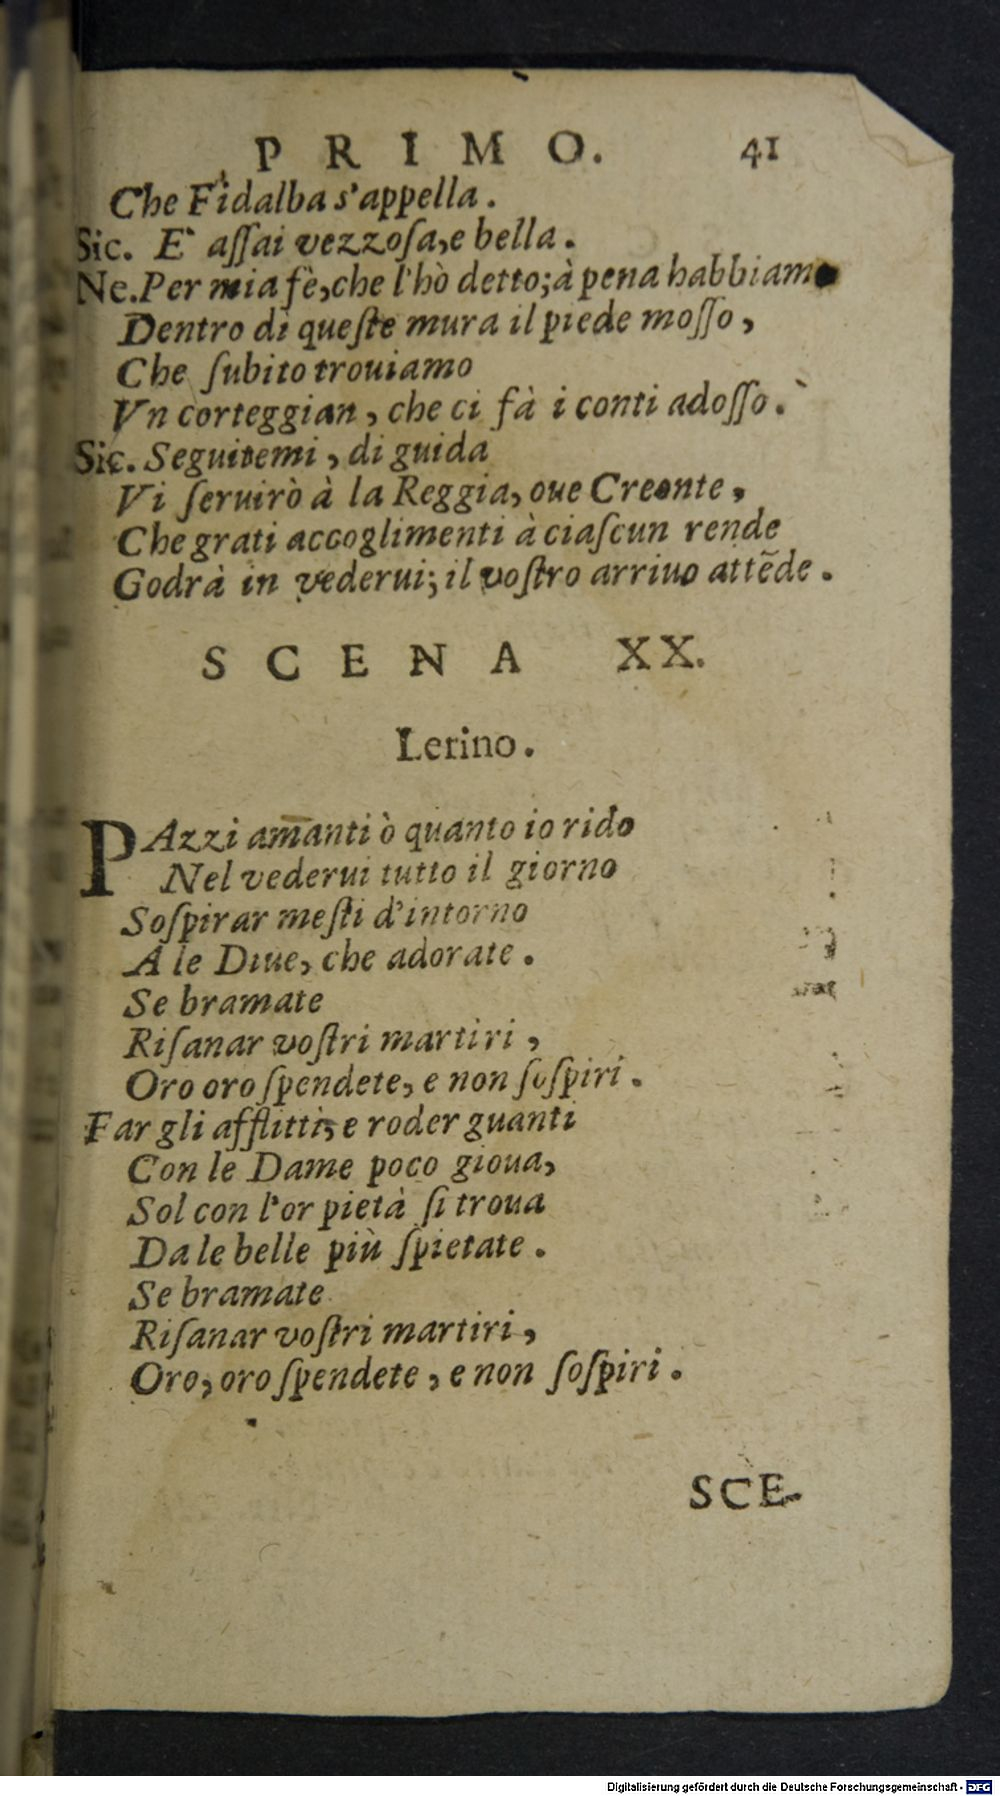 PRIMO. 41
Che Fidalba s'appella.
Sic. E' aſſai vezzoſa, e bella.
Ne. Per mia fè, che l'hò detto; à pena habbiamo
Dentro di queſte mura il piede moſſo,
Che ſubito trouiamo
Vn corteggian, che ci fà i conti adoſſo.
Sic. Seguitemi, di guida
Vi ſeruirò à la Reggia, oue Creonte,
Che grati accoglimenti à ciaſcun rende
Godrà in vederui; il voſtro arriuo attẽde.
SCENA XX.
Lerino.
PAzzi amanti ò quanto io rido
Nel vederui tutto il giorno
Soſpirar meſti d'intorno
A le Diue, che adorate.
Se bramate
Riſanar voſtri martiri,
Oro oro ſpendete, e non ſoſpiri.
Far gli afflitti, e roder guanti
Con le Dame poco gioua,
Sol con l'or pietà ſi troua
Da le belle più ſpietate.
Se bramate
Riſanar voſtri martiri,
Oro, oro ſpendete, e non ſoſpiri.
SCE-
Digitalisierung gefördert durch die Deutsche Forschungsgemeinschaft - DFG